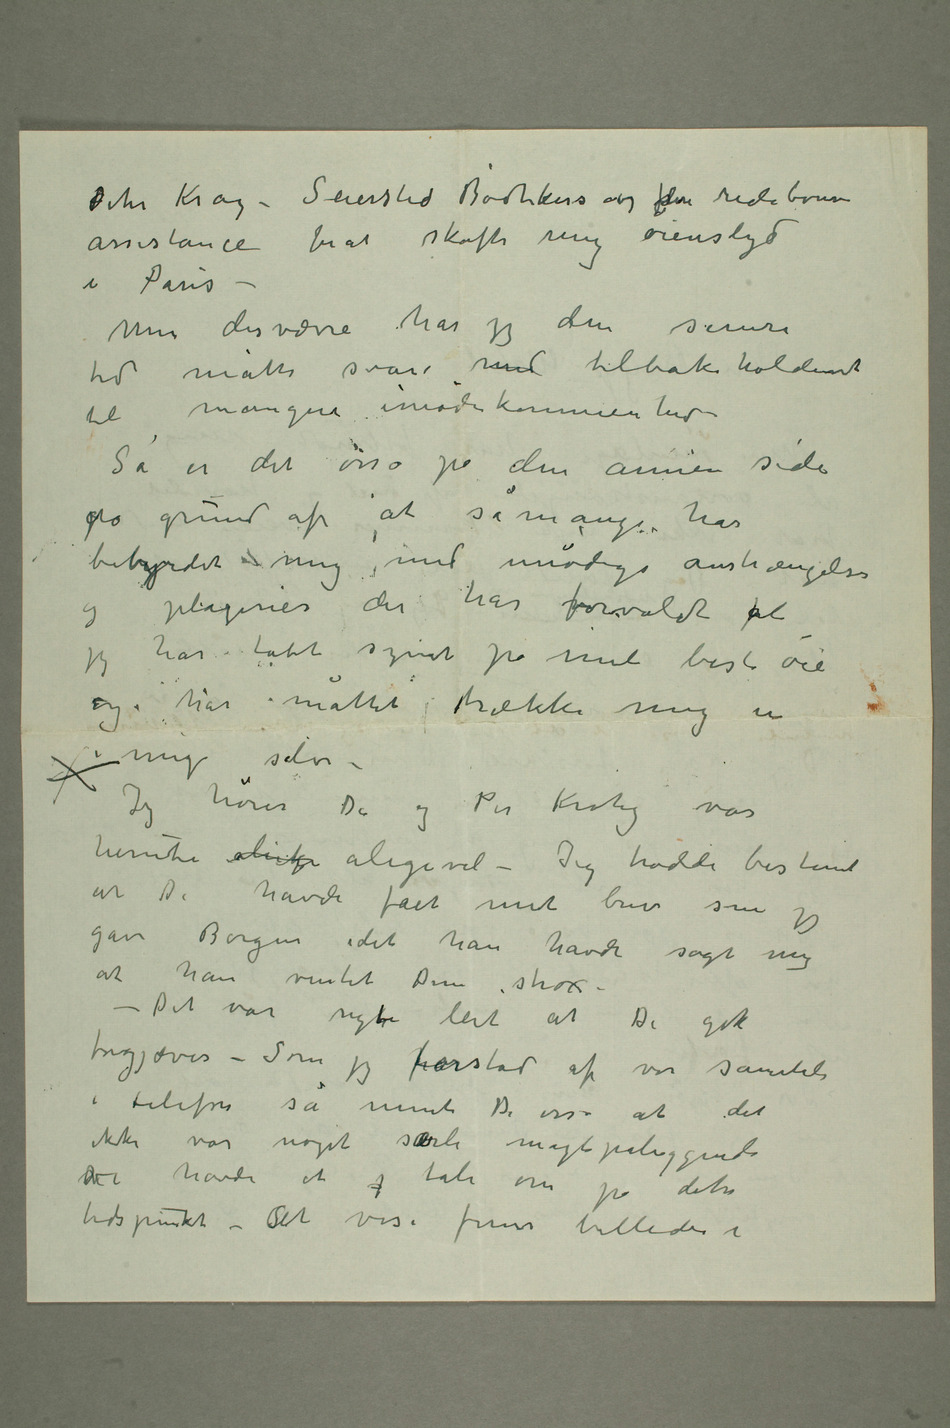 Peter Krag – Seiersted Bødtkers og den redebonne
assistance for at skaffe mig øienslyd
i Paris –
Men desværre har jeg den senere
tid måtte svare med tilbakeholdenhet
til mangen imødekommenhed –
Så er det osså på den annen side
på grund af at så mange har
bebyrdet mig med unødige anstrængelser
og plagerier der har forvoldt at
jeg har tabt synet på mit beste øie
og har måttet trække mig in
i mig selv –
Jeg hører De og Per Krohg var
herute aligevel – Jeg trodde bestemt
at De havde fået mit brev som jeg
gav Borgen idet han havde sagt mig
at han ventet Dem strax –
– Det var rigtig leit at De gik
forgjæves – Som jeg forstod af vor samtale
i telefon så mente De osså at det
ikke var noget særli magtpåliggende
vi havde at tale om på dette
tidspunkt – At vise frem billeder i